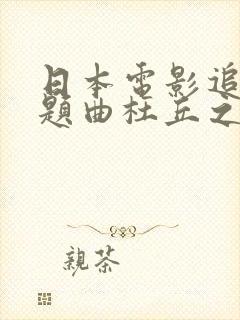 日本電影追
題曲杜丘之
親茶